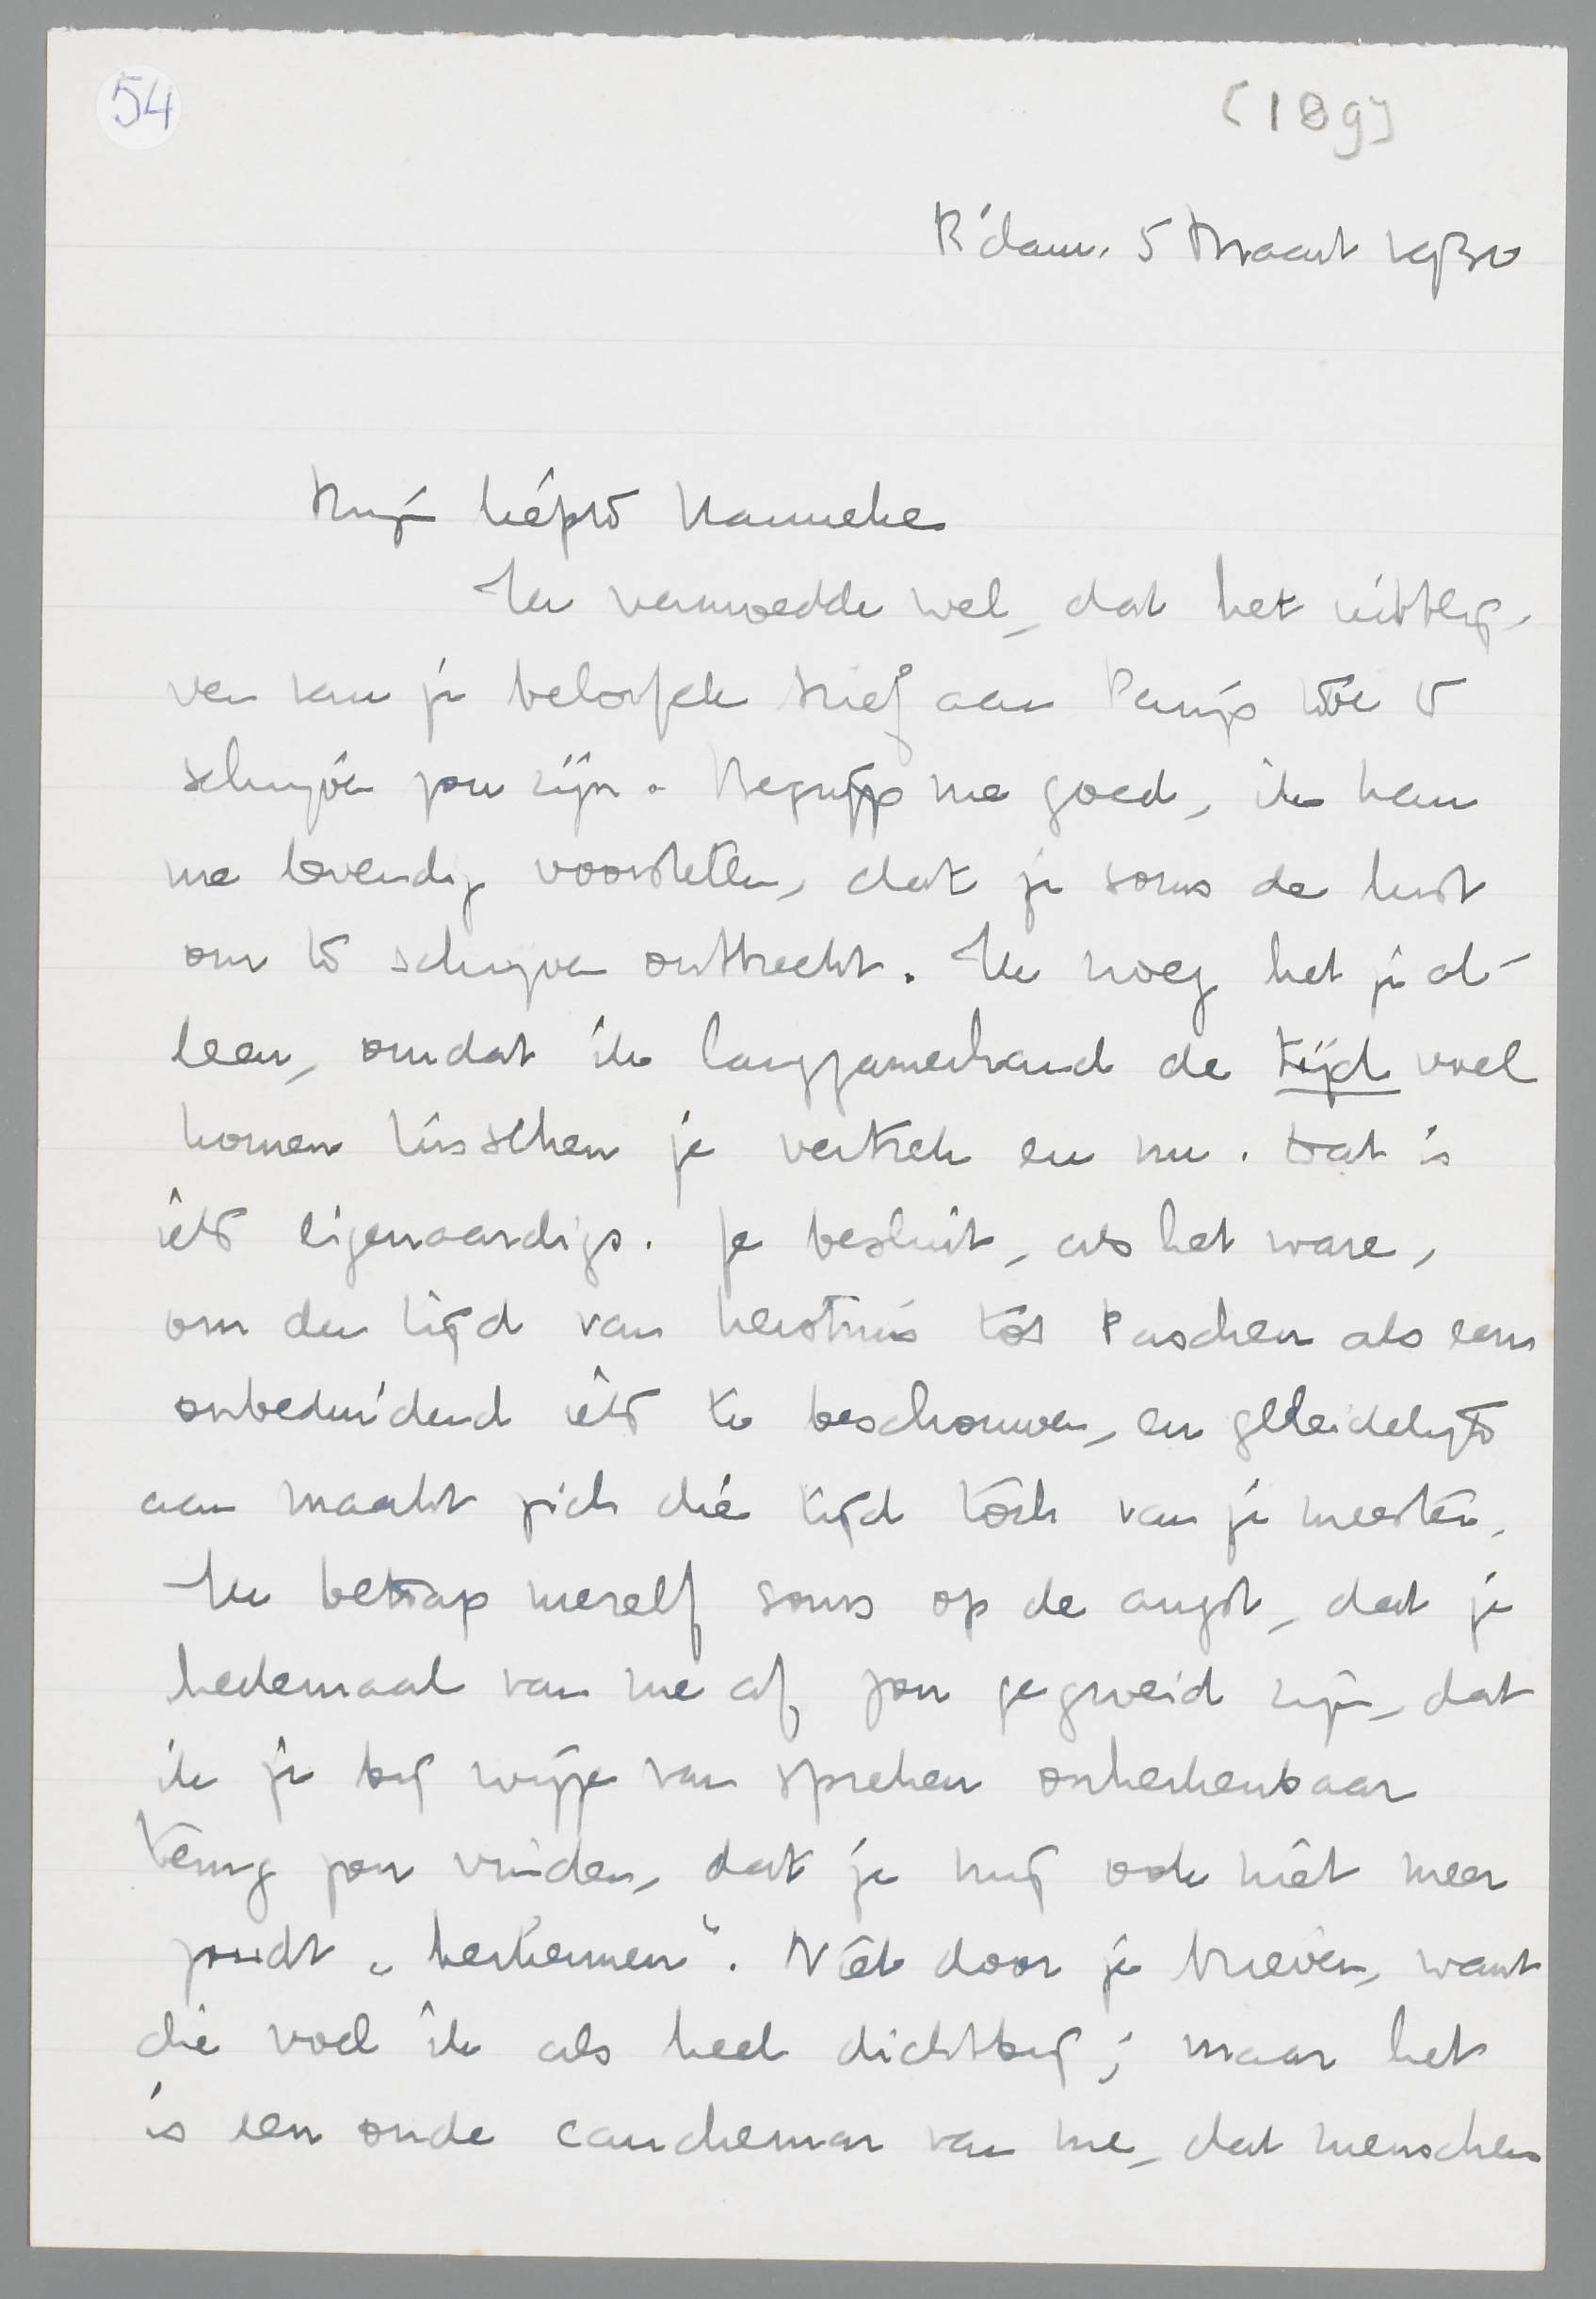 54
[189]
R'dam. 5 Maart 1930
Mijn liefste Hanneke
Ik vermoedde wel, dat het uitblij-
ven van je beloofde brief aan Parijs toe te
schrijven zou zijn. Begrijp me goed, ik kan
me levendig voorstellen, dat je soms de lust
om te schrijven ontbreekt. Ik vroeg het je al-
leen, omdat ik langzamerhand de tijd voel
komen tusschen je vertrek en nu. Dat is
iets eigenaardigs. Je besluit, als het ware,
om den tijd van Kerstmis tot Paschen als een
onbeduidend iets te beschouwen, en geleidelijk
aan maakt zich die tijd toch van je meester.
Ik betrap mezelf soms op de angst, dat je
heelemaal van me af zou gegroeid zijn, dat
ik je bij wijze van spreken onherkenbaar
terug zou vinden, dat je mij ook niet meer
zoudt „herkennen". Niet door je brieven, want
die voel ik als heel dichtbij; maar het
is een oude cauchemar van me, dat menschen